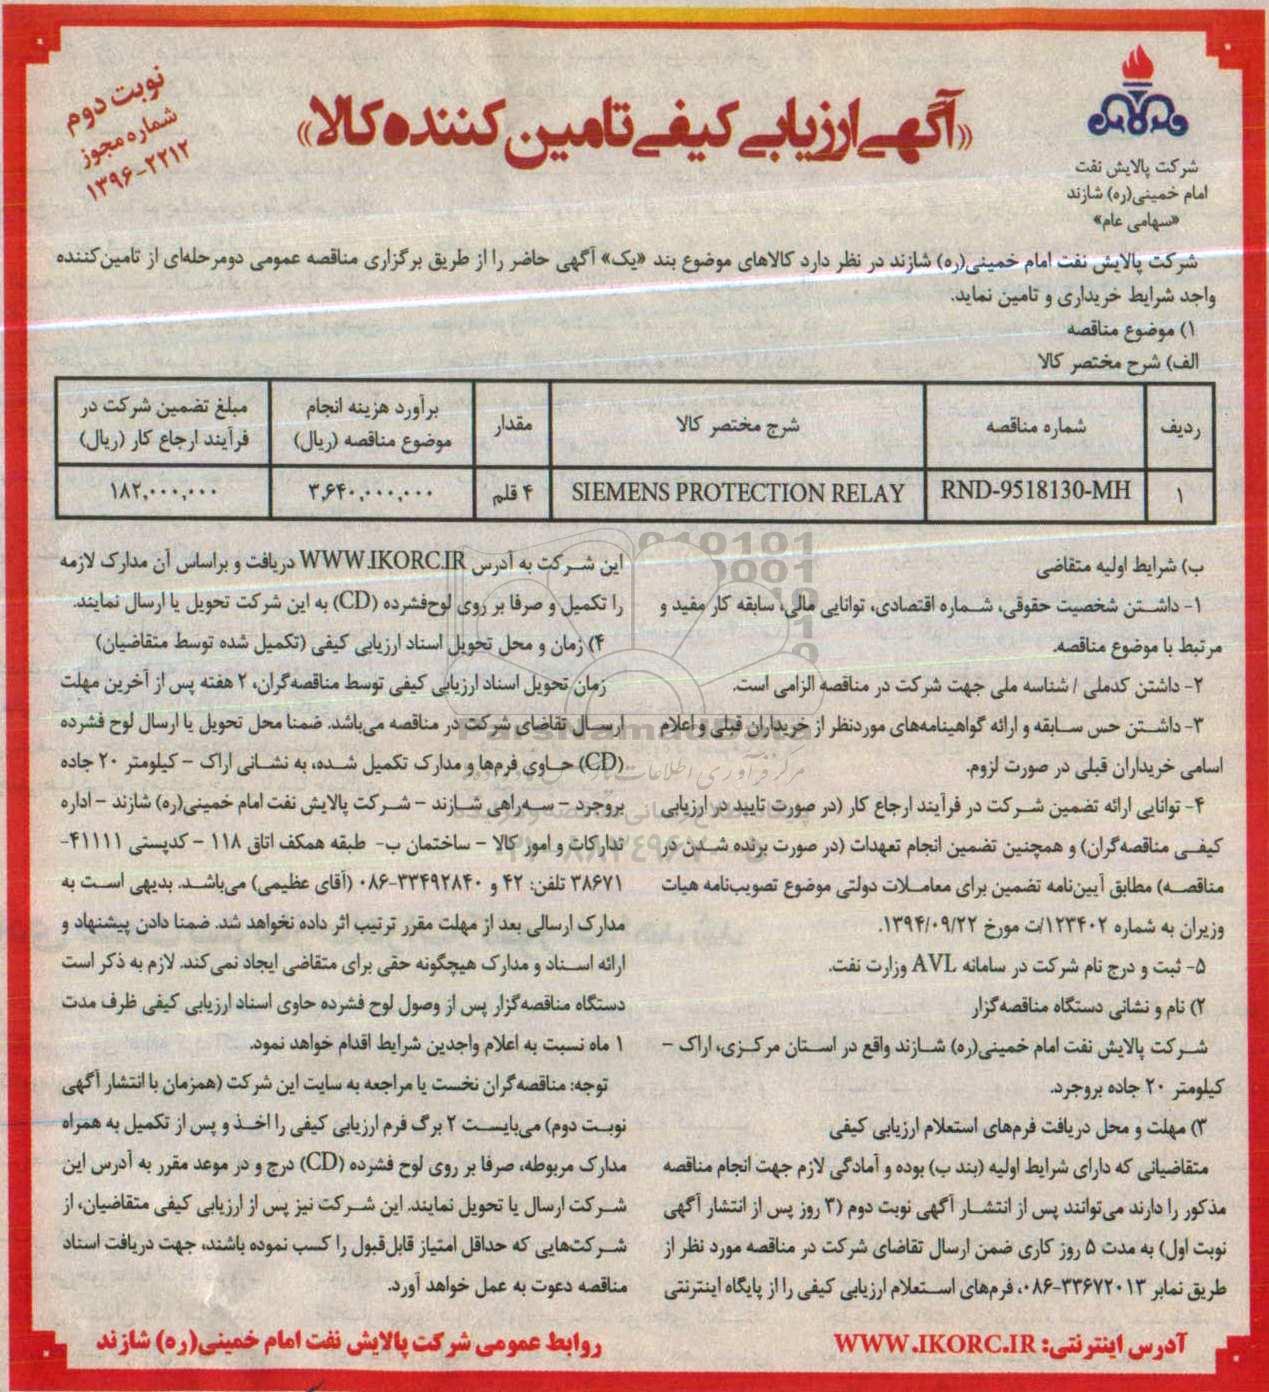 شرکت پالایش نفت
امام خمینی(ره) شازند
«سهامی عام»
«آگهی ارزیابی کیفی تامین کننده کالا»
نوبت دوم
شماره مجوز
۱۳۹۶-۲۲۱۲
شرکت پالایش نفت امام خمینی(ره) شازند در نظر دارد کالاهای موضوع بند «یک» آگهی حاضر را از طریق برگزاری مناقصه عمومی دومرحله‌ای از تامین‌کننده
واجد شرایط خریداری و تامین نماید.
۱) موضوع مناقصه
الف) شرح مختصر کالا
ردیف | شماره مناقصه | شرح مختصر کالا | مقدار | برآورد هزینه انجام موضوع مناقصه (ریال) | مبلغ تضمین شرکت در فرآیند ارجاع کار (ریال)
۱ | RND-9518130-MH | SIEMENS PROTECTION RELAY | ۴ قلم | ۳,۶۴۰,۰۰۰,۰۰۰ | ۱۸۲,۰۰۰,۰۰۰
ب) شرایط اولیه متقاضی
۱- داشتن شخصیت حقوقی، شماره اقتصادی، توانایی مالی، سابقه کار مفید و
مرتبط با موضوع مناقصه.
۲- داشتن کدملی / شناسه ملی جهت شرکت در مناقصه الزامی است.
۳- داشتن حس سابقه و ارائه گواهینامه‌های موردنظر از خریداران قبلی و اعلام
اسامی خریداران قبلی در صورت لزوم.
۴- توانایی ارائه تضمین شرکت در فرآیند ارجاع کار (در صورت تایید در ارزیابی
کیفی مناقصه‌گران) و همچنین تضمین انجام تعهدات (در صورت برنده شدن در
مناقصه) مطابق آیین‌نامه تضمین برای معاملات دولتی موضوع تصویب‌نامه هیات
وزیران به شماره ۱۲۳۴۰۲/ت مورخ ۱۳۹۴/۰۹/۲۲.
۵- ثبت و درج نام شرکت در سامانه AVL وزارت نفت.
۲) نام و نشانی دستگاه مناقصه‌گزار
شرکت پالایش نفت امام خمینی(ره) شازند واقع در استان مرکزی، اراک –
کیلومتر ۲۰ جاده بروجرد.
۳) مهلت و محل دریافت فرم‌های استعلام ارزیابی کیفی
متقاضیانی که دارای شرایط اولیه (بند ب) بوده و آمادگی لازم جهت انجام مناقصه
مذکور را دارند می‌توانند پس از انتشار آگهی نوبت دوم (۳ روز پس از انتشار آگهی
نوبت اول) به مدت ۵ روز کاری ضمن ارسال تقاضای شرکت در مناقصه مورد نظر از
طریق نمابر ۳۳۶۷۲۰۱۳-۰۸۶، فرم‌های استعلام ارزیابی کیفی را از پایگاه اینترنتی
این شرکت به آدرس WWW.IKORC.IR دریافت و براساس آن مدارک لازمه
را تکمیل و صرفا بر روی لوح‌فشرده (CD) به این شرکت تحویل یا ارسال نمایند.
۴) زمان و محل تحویل اسناد ارزیابی کیفی (تکمیل شده توسط متقاضیان)
زمان تحویل اسناد ارزیابی کیفی توسط مناقصه‌گران، ۲ هفته پس از آخرین مهلت
ارسال تقاضای شرکت در مناقصه می‌باشد. ضمنا محل تحویل یا ارسال لوح فشرده
(CD) حاوی فرم‌ها و مدارک تکمیل شده، به نشانی اراک – کیلومتر ۲۰ جاده
بروجرد – سه‌راهی شازند – شرکت پالایش نفت امام خمینی(ره) شازند – اداره
تدارکات و امور کالا – ساختمان ب- طبقه همکف اتاق ۱۱۸ – کدپستی ۴۱۱۱۱-
۳۸۶۷۱ تلفن: ۴۲ و ۳۳۴۹۲۸۴۰-۰۸۶ (آقای عظیمی) می‌باشد. بدیهی است به
مدارک ارسالی بعد از مهلت مقرر ترتیب اثر داده نخواهد شد. ضمنا دادن پیشنهاد و
ارائه اسناد و مدارک هیچگونه حقی برای متقاضی ایجاد نمی‌کند. لازم به ذکر است
دستگاه مناقصه‌گزار پس از وصول لوح فشرده حاوی اسناد ارزیابی کیفی ظرف مدت
۱ ماه نسبت به اعلام واجدین شرایط اقدام خواهد نمود.
توجه: مناقصه‌گران نخست یا مراجعه به سایت این شرکت (همزمان با انتشار آگهی
نوبت دوم) می‌بایست ۲ برگ فرم ارزیابی کیفی را اخذ و پس از تکمیل به همراه
مدارک مربوطه، صرفا بر روی لوح فشرده (CD) درج و در موعد مقرر به آدرس این
شرکت ارسال یا تحویل نمایند. این شرکت نیز پس از ارزیابی کیفی متقاضیان، از
شرکت‌هایی که حداقل امتیاز قابل‌قبول را کسب نموده باشند، جهت دریافت اسناد
مناقصه دعوت به عمل خواهد آورد.
آدرس اینترنتی: WWW.IKORC.IR
روابط عمومی شرکت پالایش نفت امام خمینی(ره) شازند